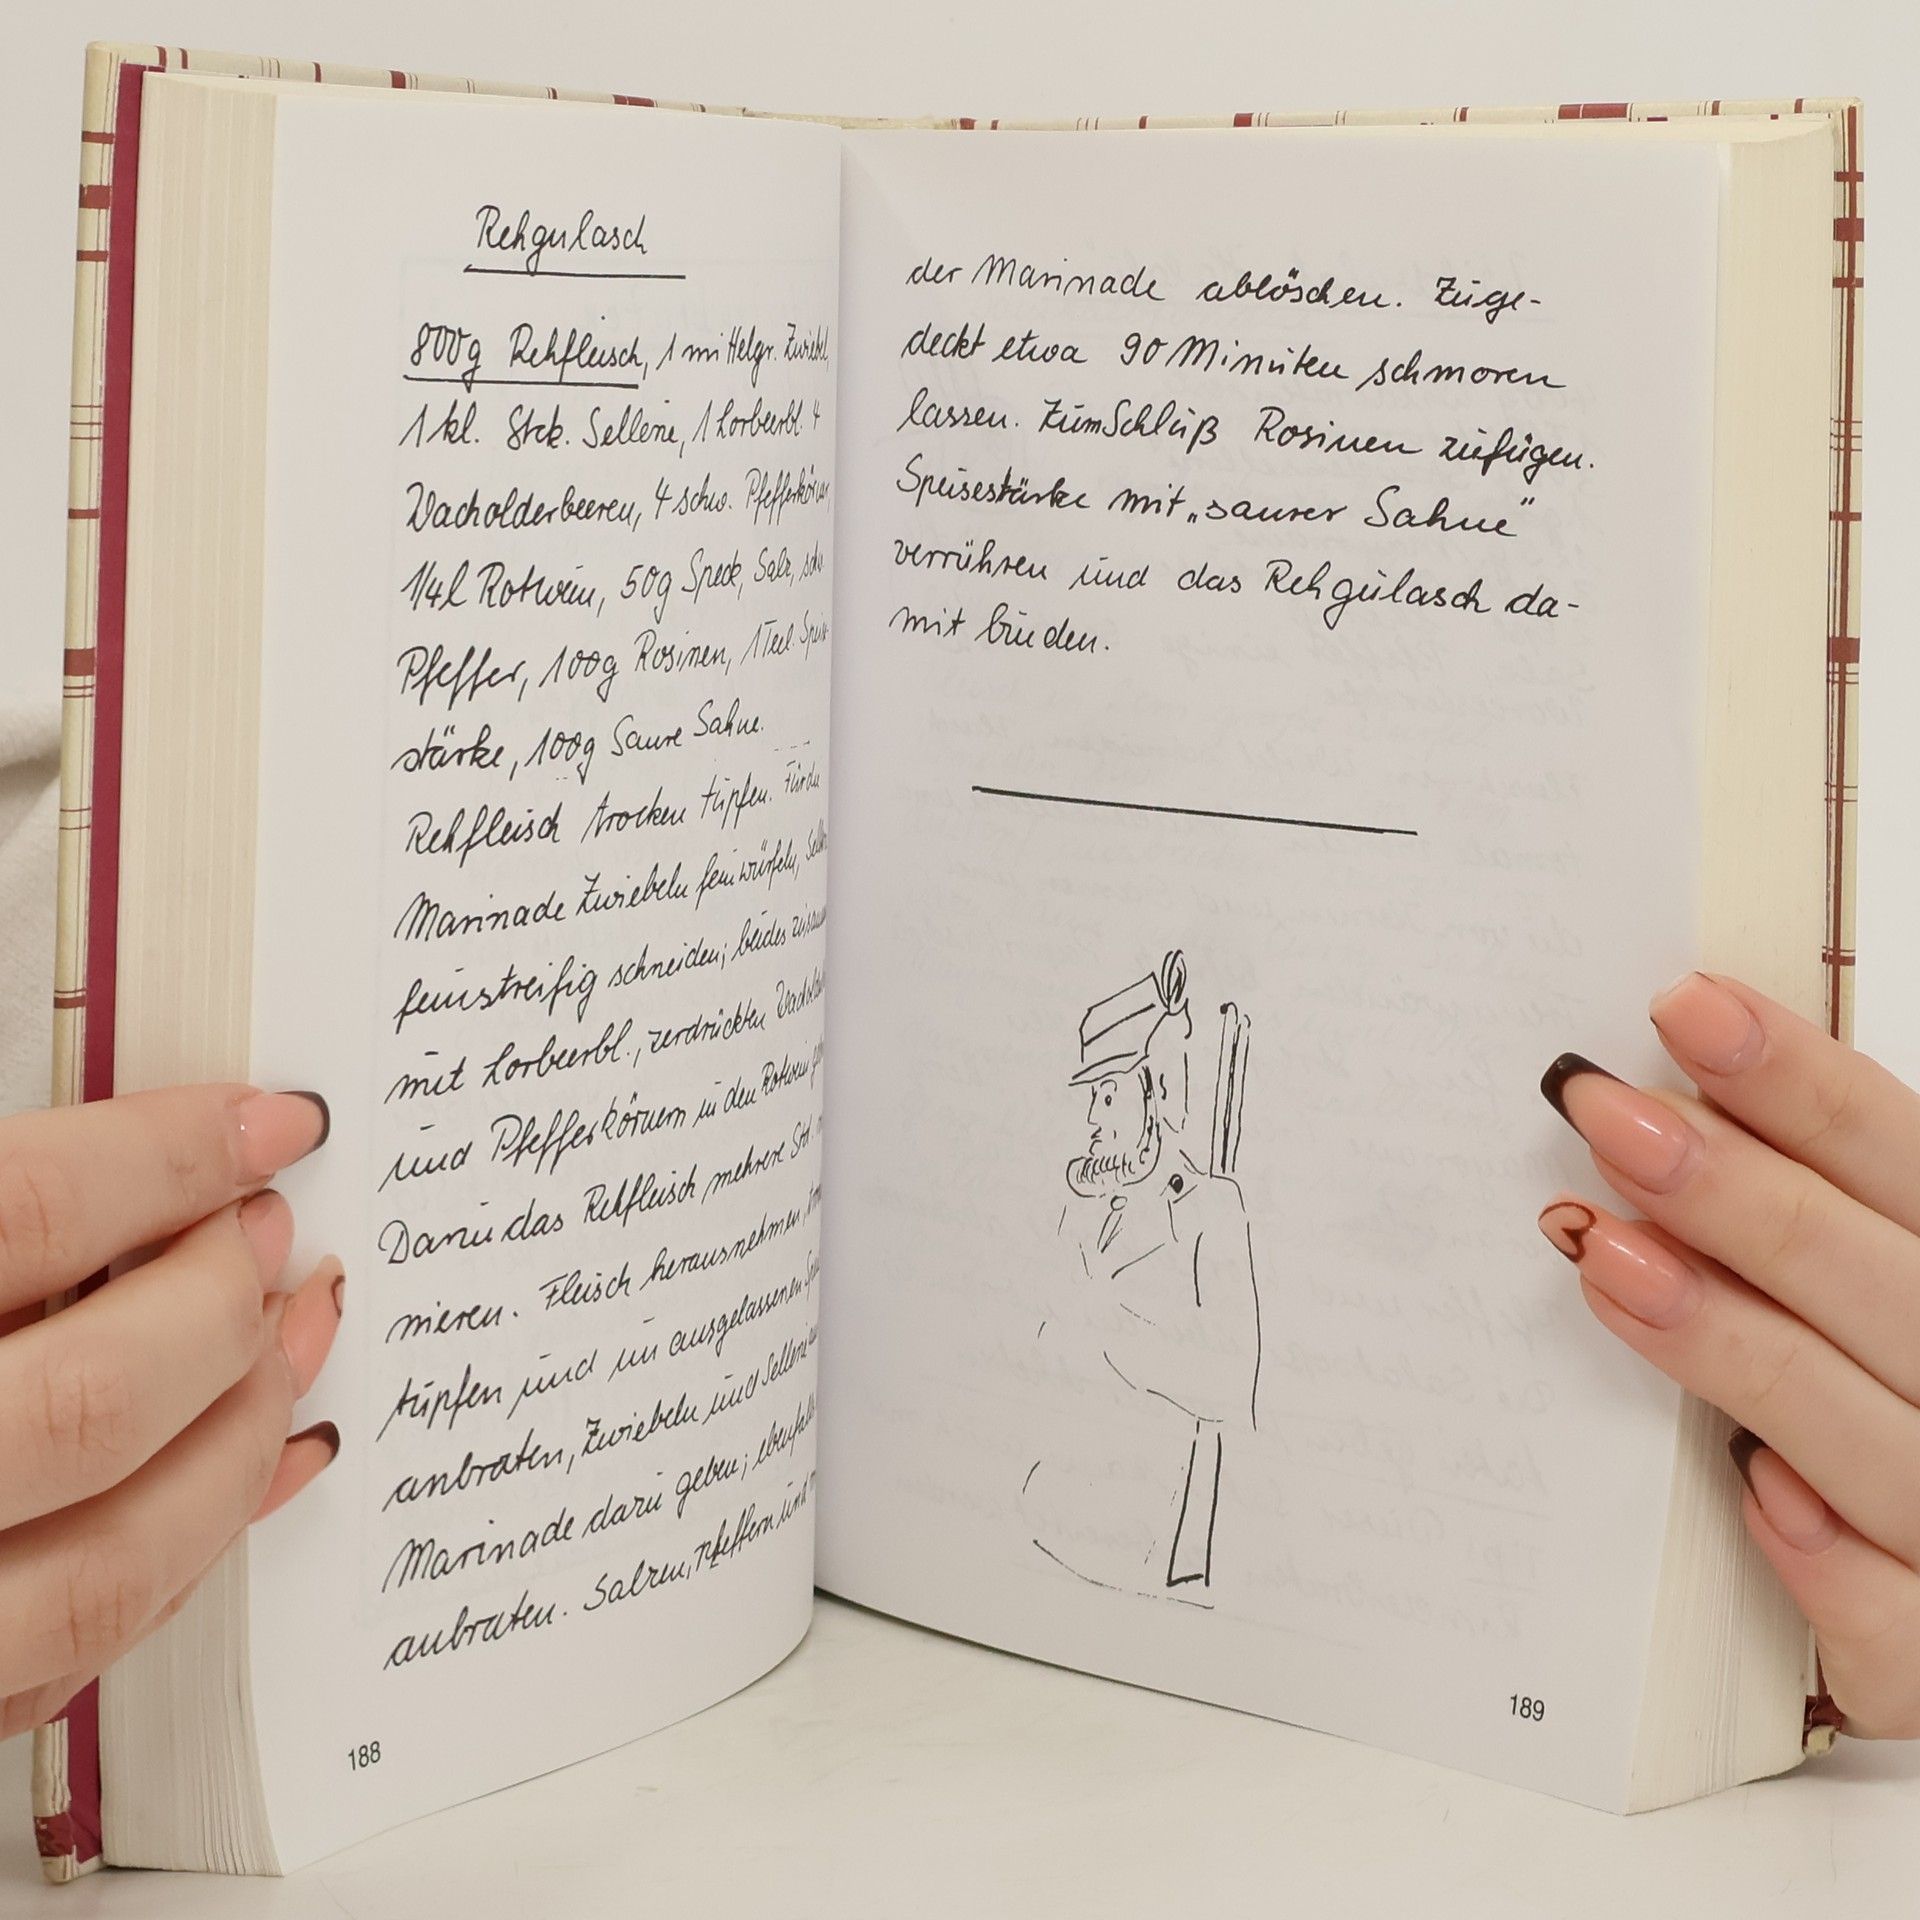 Rehgulasch
800g Rehfleisch, 1 mittelgr. Zwiebel,
1 kl. Stck. Sellerie, 1 Lorbeerbl. 4
Wacholderbeeren, 4 schw. Pfefferkörner,
1/4 l Rotwein, 50g Speck, Salz, schw.
Pfeffer, 100g Rosinen, 1 Teel. Speise-
stärke, 100g Saure Sahne.
Rehfleisch trocken tupfen. Für die
Marinade Zwiebeln fein würfeln,
feinstreifig schneiden; beides
mit Lorbeerbl., zerdrückten
und Pfefferkörnern in den Rotwein
Darin das Rehfleisch mehrere Std.
nieren. Fleisch herausnehmen,
tupfen und im ausgelassenen
anbraten, Zwiebeln und Sellerie
Marinade dazu geben; ebenfalls
anbraten. Salzen, Pfeffern und
188
der Marinade ablöschen. Zuge-
deckt etwa 90 Minuten schmoren
lassen. Zum Schluß Rosinen zufügen.
Speisestärke mit „saurer Sahne"
verrühren und das Rehgulasch da-
mit binden.
189